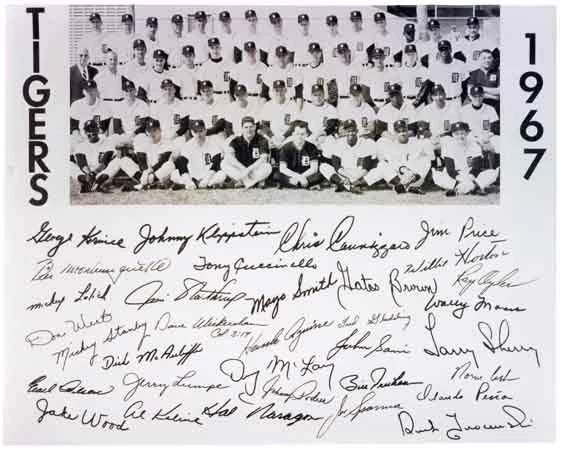 TIGERS
1967
George Korince Johnny Klippstein Chris Cannizzaro Jim Price
Bill Monbouquette Tony Cuccinello Willie Horton
Mickey Lolich Jim Northrup Mayo Smith Gates Brown Ray Oyler
Don Wert Mickey Stanley Dave Wickersham Hank Aguirre Fred Gladding Wally Moses
Dick McAuliffe Don McMahon John Sain Larry Sherry
Earl Wilson Jerry Lumpe Johnny Podres Bill Freehan Norm Cash
Jake Wood Al Kaline Hal Naragon Joe Sparma Orlando Peña
Dick Tracewski